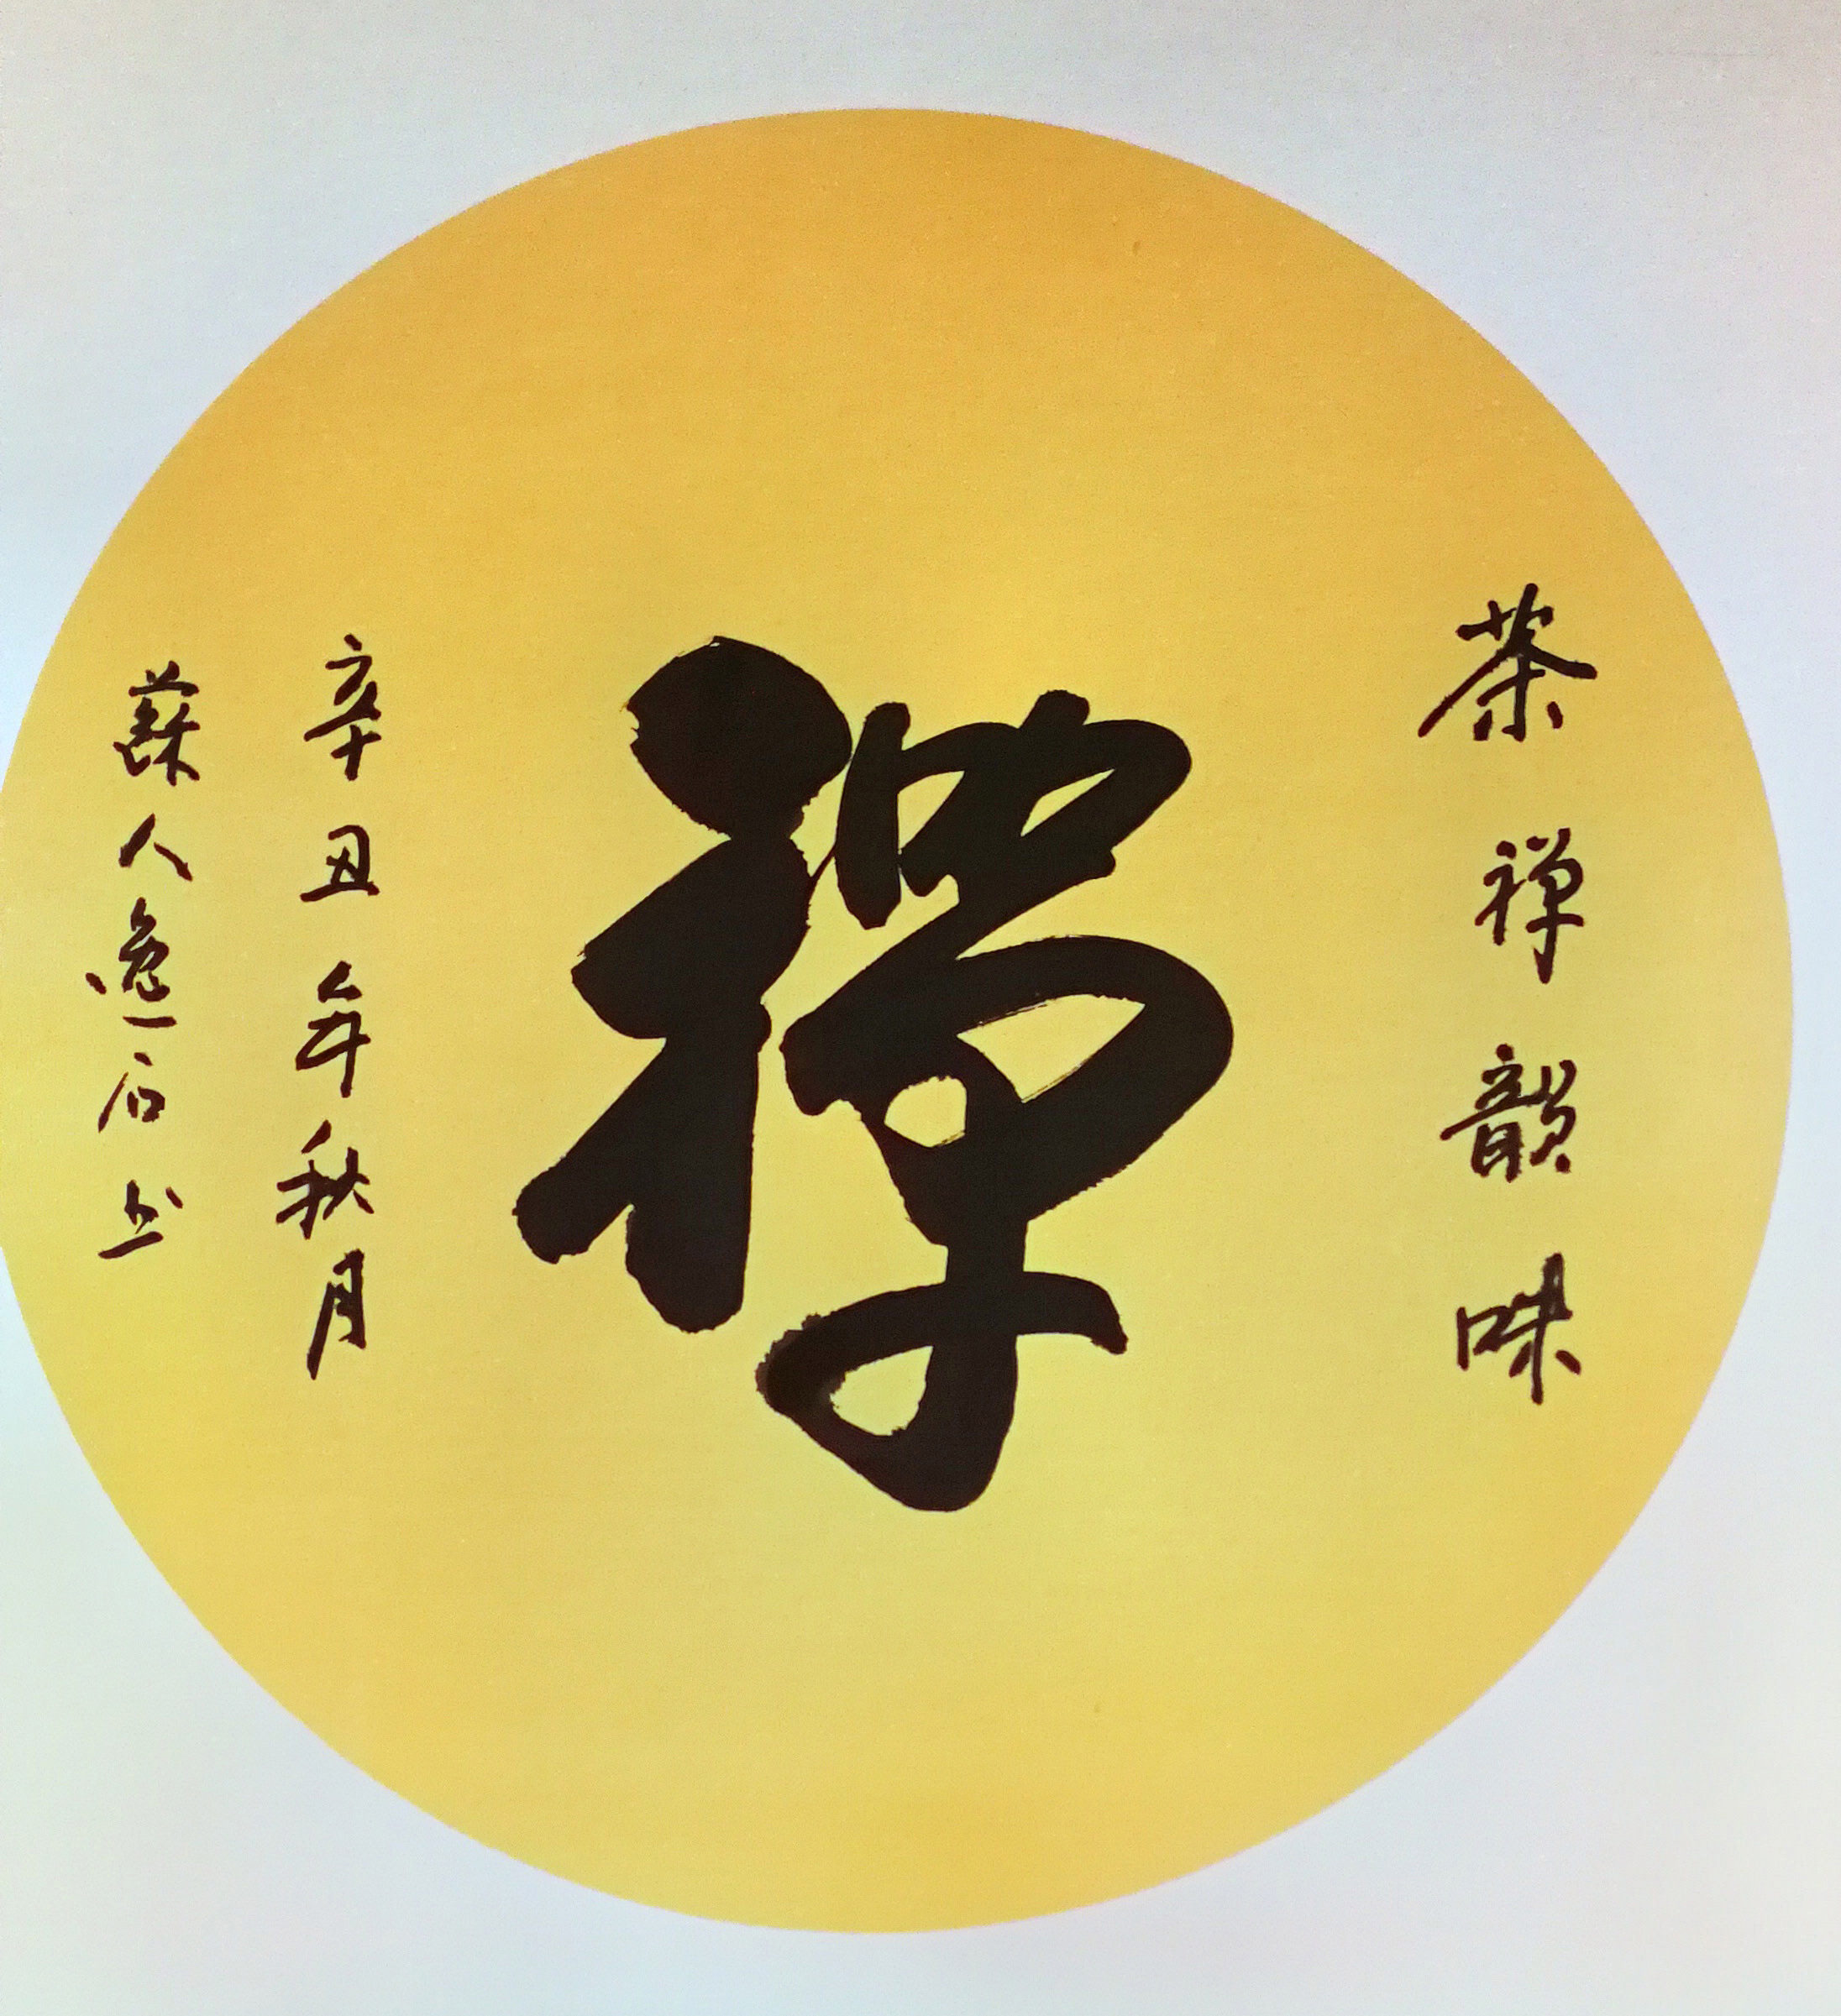 茶禅韻味
禪
辛丑年秋月
蘇人逸石书